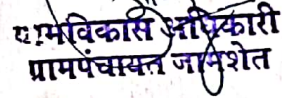 ग्रामविकास अधिकारी
ग्रामपंचायत जामशेत